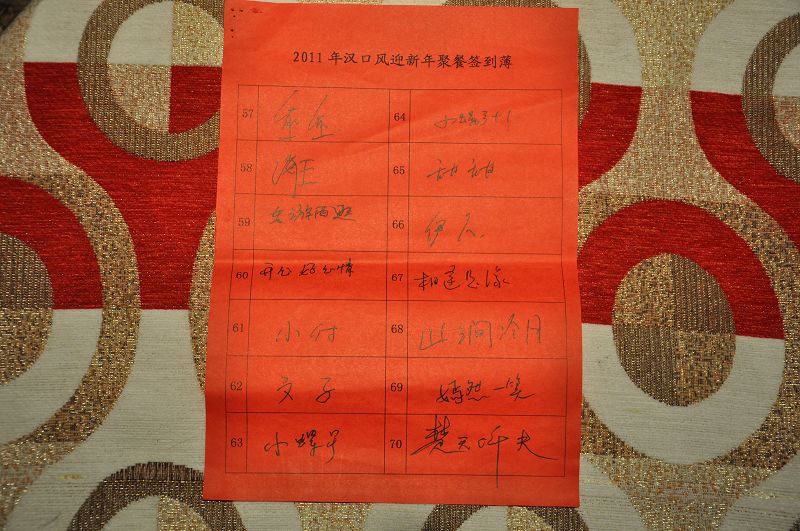 2011年汉口风迎新年聚餐签到薄
57
64
58 海王
65 甜甜
59 东游西逛
66 伊人
60 开心好心情
67 相逢是缘
61 小付
68 山涧冷月
62 文子
69 嫣然一笑
63 小螺号
70